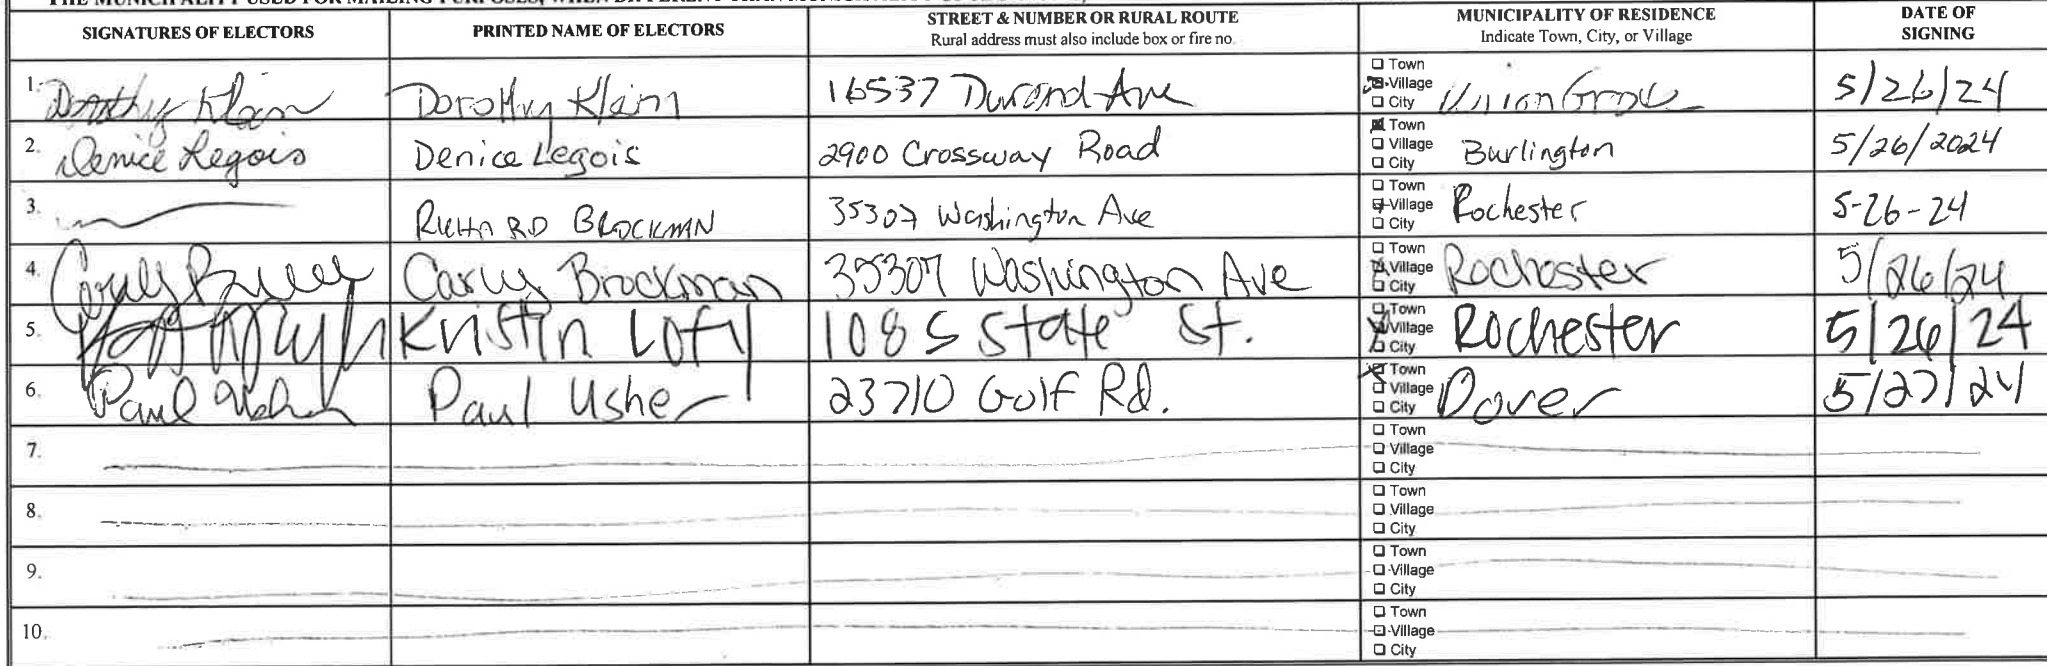 SIGNATURES OF ELECTORS PRINTED NAME OF ELECTORS STREET & NUMBER OR RURAL ROUTE Rural address must also include box or fire no. MUNICIPALITY OF RESIDENCE Indicate Town, City, or Village DATE OF SIGNING
1. Dorothy Klein Dorothy Klein 16537 Durand Ave Town Village City Union Grove 5/26/24
2. Denice Legois Denice Legois 2900 Crossway Road Town Village City Burlington 5/26/2024
3. RICHARD BROCKMAN 35307 Washington Ave Town Village City Rochester 5-26-24
4. Carly Brockman 35307 Washington Ave Town Village City Rochester 5/26/24
5. Kristin Lofy 108 S State St. Town Village City Rochester 5/26/24
6. Paul Usher Paul Usher 23710 Golf Rd. Town Village City Dover 5/27/24
7. Town Village City
8. Town Village City
9. Town Village City
10. Town Village City